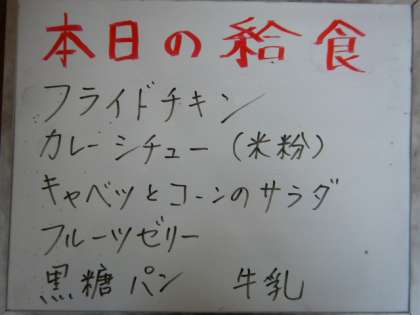 本日の給食
フライドチキン
カレーシチュー（米粉）
キャベツとコーンのサラダ
フルーツゼリー
黒糖パン　牛乳